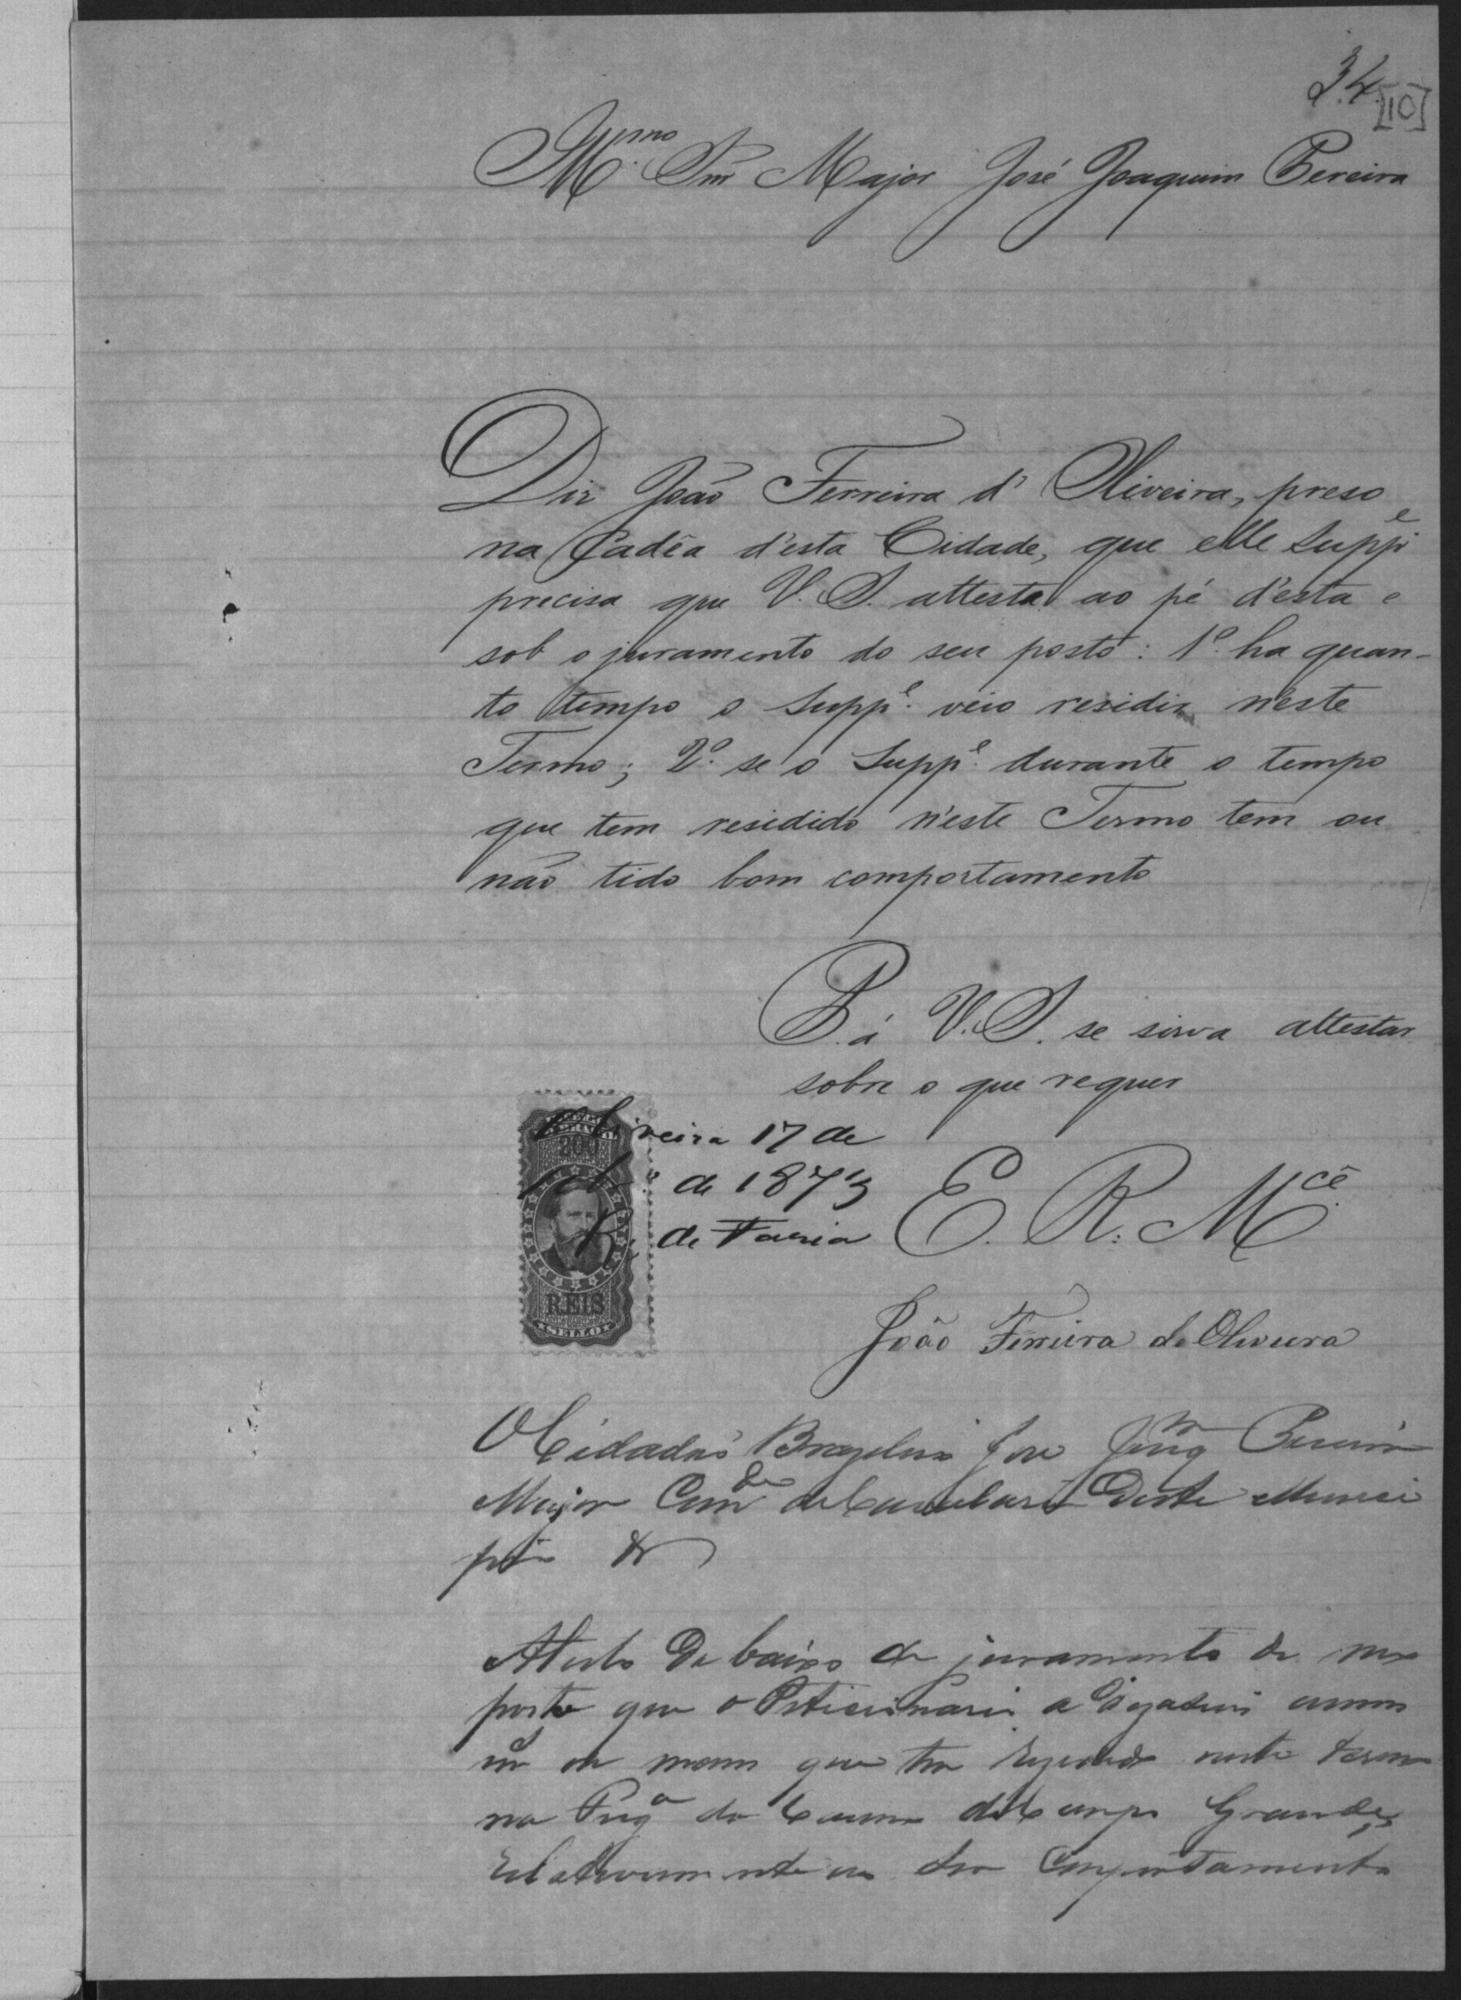 34
[10]
Illmo. Snr Major José Joaquim Pereira
Diz João Ferreira d'Oliveira, preso
na Cadêa d'esta Cidade, que elle Suppe
precisa que V. S. attesta ao pé d'esta e
sob o juramento do seu posto: 1º ha quan-
to tempo o Suppe. veio residir n'este
Termo; 2º. se o Suppe. durante o tempo
que tem residido n'este Termo tem ou
não tido bom comportamento
P. á V. S. se sirva attestar
sobre o que requer
Oliveira 17 de
de 1873
de Faria
200
REIS
SELLO
E. R. Mcê.
João Ferreira de Oliveira
O Cidadão Brazileiro José Joaqm Pereira
Major Comde de Cavallaria deste Munici
pio &
Atesto de baixo de juramento de meo
posto que o Peticionario a dezaseis annos
ou menos que tem rezidido neste termo
na do Carmo do Campo Grande,
relativamente ao seo comportamento